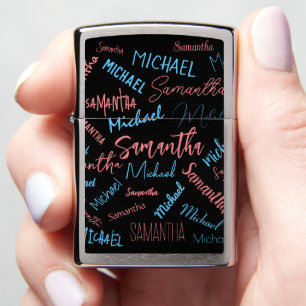 Samantha
MICHAEL
Samantha
MICHAEL
Samantha
SAMANTHA
Michael
Michael
Samantha
Samantha
Michael
Samantha
MICHAEL
Samantha
Michael
Samantha
Michael
MICHAEL
SAMANTHA
Michael